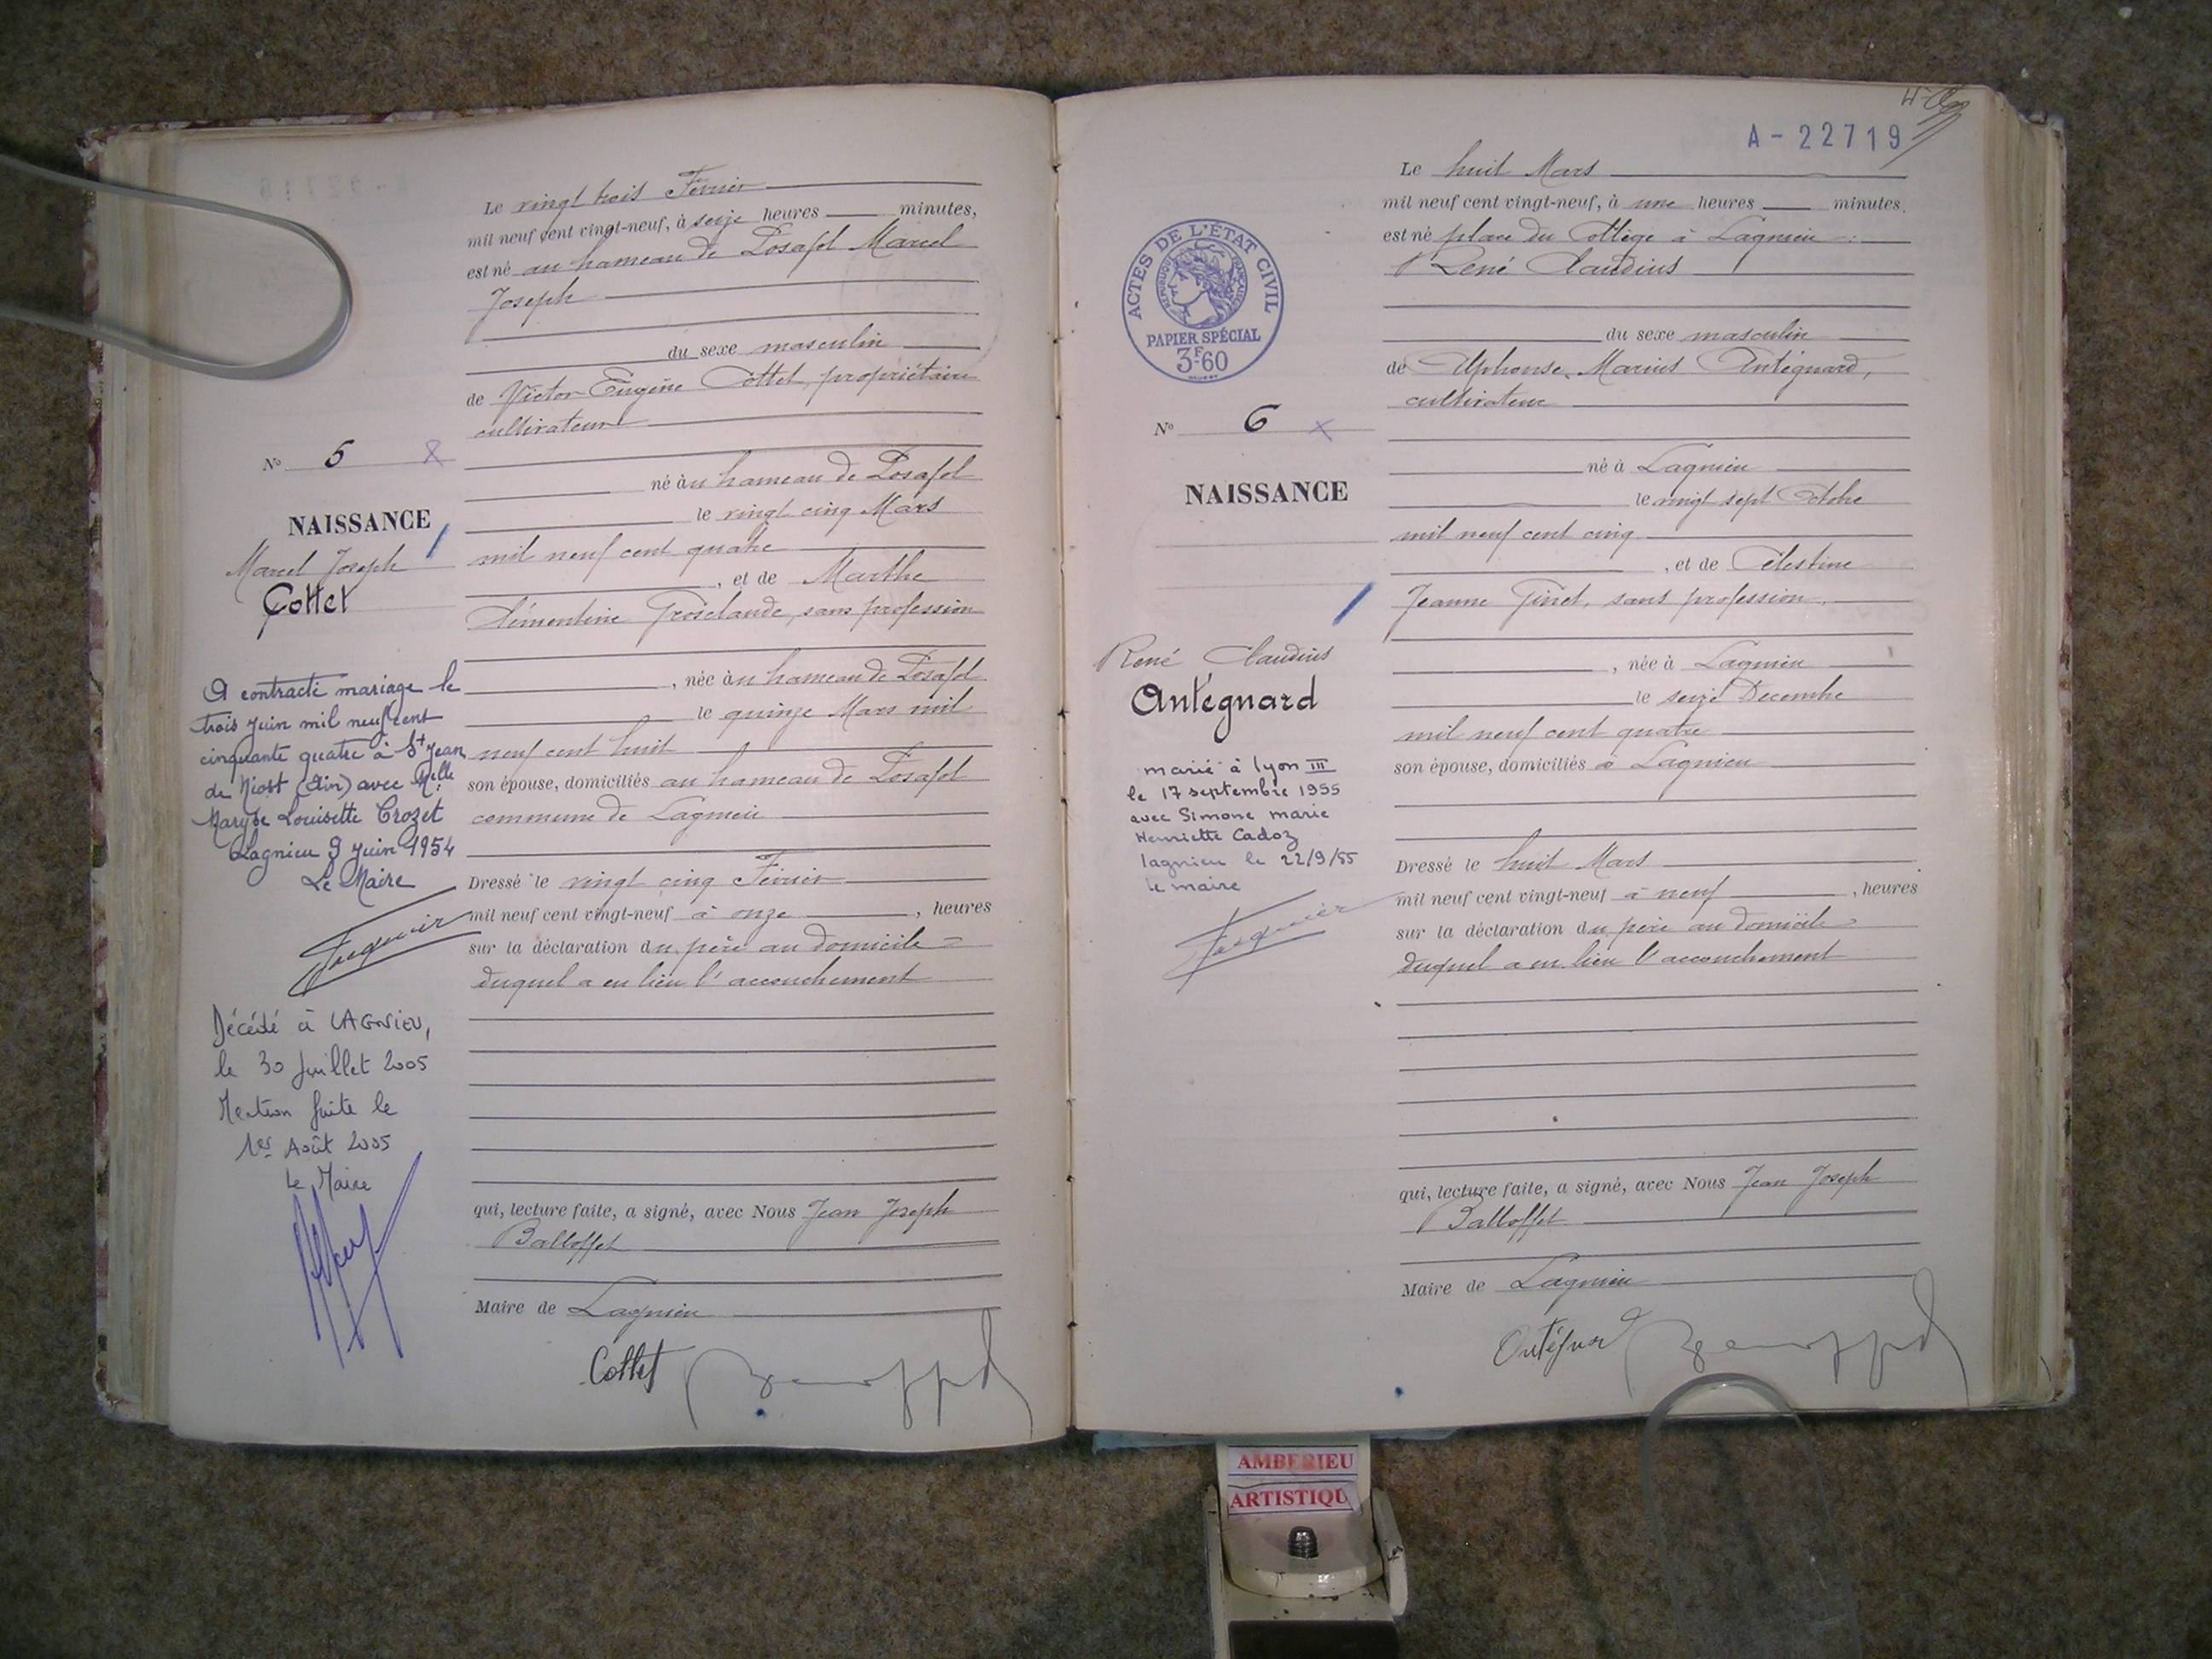 Le vingt trois Février
mil neuf cent vingt-neuf, à seize heures minutes,
est né au hameau de Posafol Marcel
Joseph
du sexe masculin
de Victor Eugène Cottet, propriétaire
cultivateur
né au hameau de Posafol
le vingt cinq Mars
mil neuf cent quatre
, et de Marthe
Clémentine Grosclaude, sans profession
, née au hameau de Posafol
le quinze Mars mil
neuf cent huit
son épouse, domiciliés au hameau de Posafol
commune de Lagnieu
Dressé le vingt cinq Février
mil neuf cent vingt-neuf à onze , heures
sur la déclaration du père au domicile =
duquel a eu lieu l'accouchement
qui, lecture faite, a signé, avec Nous Jean Joseph
Balloffet
Maire de Lagnieu
Cottet
No 5
NAISSANCE
Marcel Joseph
Cottet
A contracté mariage le
trois juin mil neuf cent
cinquante quatre à St Jean
de Niost (Ain) avec Melle
Maryse Louisette Crozet
Lagnieu 9 juin 1954
Le Maire
Décédé à LAGNIEU,
le 30 Juillet 2005
Mention faite le
1er Août 2005
Le Maire
A-22719
Le huit Mars
mil neuf cent vingt-neuf, à une heures minutes.
est né place du Collège à Lagnieu
René Claudius
du sexe masculin
de Alphonse Marius Antégnard,
cultivateur
né à Lagnieu
le vingt sept Octobre
mil neuf cent cinq
, et de Célestine
Jeanne Ginet, sans profession.
, née à Lagnieu
le seize Décembre
mil neuf cent quatre
son épouse, domiciliés à Lagnieu
Dressé le huit Mars
mil neuf cent vingt-neuf à neuf , heures
sur la déclaration du père au domicile =
duquel a eu lieu l'accouchement
qui, lecture faite, a signé, avec Nous Jean Joseph
Balloffet
Maire de Lagnieu
Antégnard
ACTES DE L'ÉTAT CIVIL
RÉPUBLIQUE FRANÇAISE
PAPIER SPÉCIAL
3F60
No 6
NAISSANCE
René Claudius
Antégnard
marié à Lyon III
le 17 septembre 1955
avec Simone marie
Henriette Cadoz
lagnieu le 22/9/55
le maire
AMBERIEU
ARTISTIQU